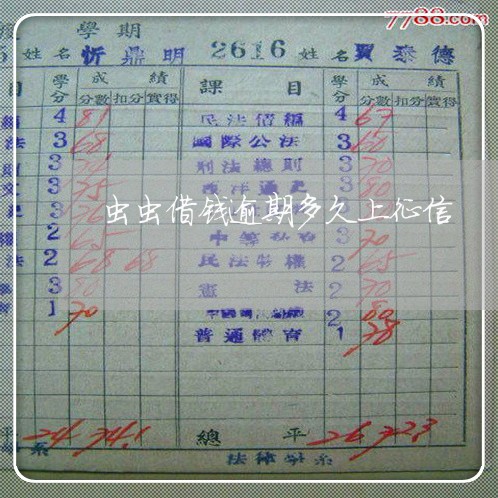 7788.com
學期
姓名 忻鼎明 2616 姓名 賈泰德
目 學分 成績 課目 學分 成績
分數 扣分 實得 分數 扣分 實得
4 81 民法債編 4 67
法 3 68 國際公法 3 60
3 刑法總則 3 70
3 75 西洋通史 3 80
虫虫借钱逾期多久上征信
2 65 3 70
法 2 68 68 民法物權 2 65
3 80 憲法 2 70
1 70 2 80
普通體育 1 78
平 24 74.1 總平 26 72.3
系 法律學系